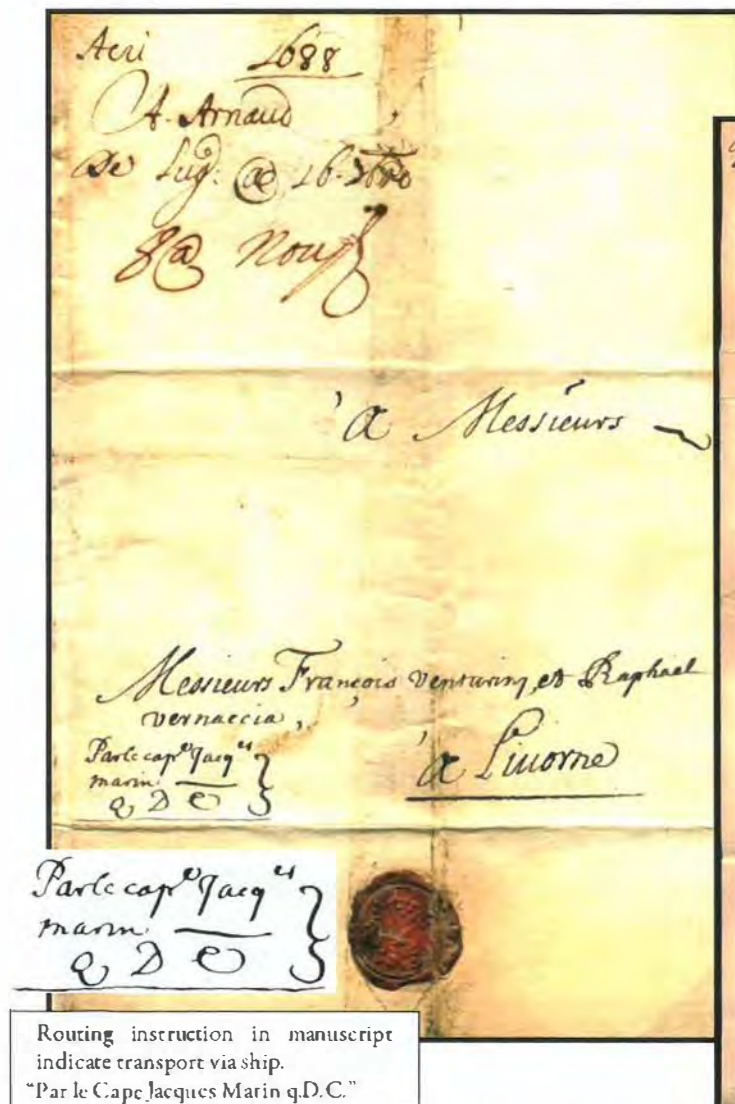 Acri 1688
A. Arnaud
De Lug: @ 16.
8@
à Messieurs
Messieurs François venturiny et Raphael
vernaccia,
Par le cap⁰ Jacq es
marin
Q D C
à Liuorne
Par le cap⁰ Jacq es
marin
Q D C
Routing instruction in manuscript
indicate transport via ship.
“Par le Cape Jacques Marin q.D.C.”